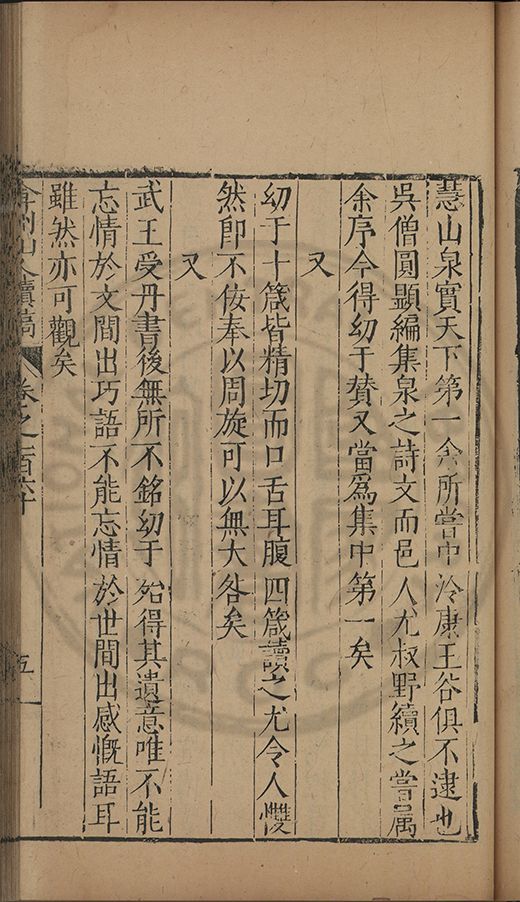 慧山泉實天下第一余所嘗中泠康王谷俱不逮也
吳僧圓顯編集泉之詩文而邑人尤叔野續之嘗屬
余序今得幼于贊又當為集中第一矣
又
幼于十箴皆精切而口舌耳腹四箴讀之尤令人懼
然即不佞奉以周旋可以無大咎矣
又
武王受丹書後無所不銘幼于殆得其遺意唯不能
忘情於文間出巧語不能忘情於世間出感慨語耳
雖然亦可觀矣
弇州山人續稿 卷之一百六十 五